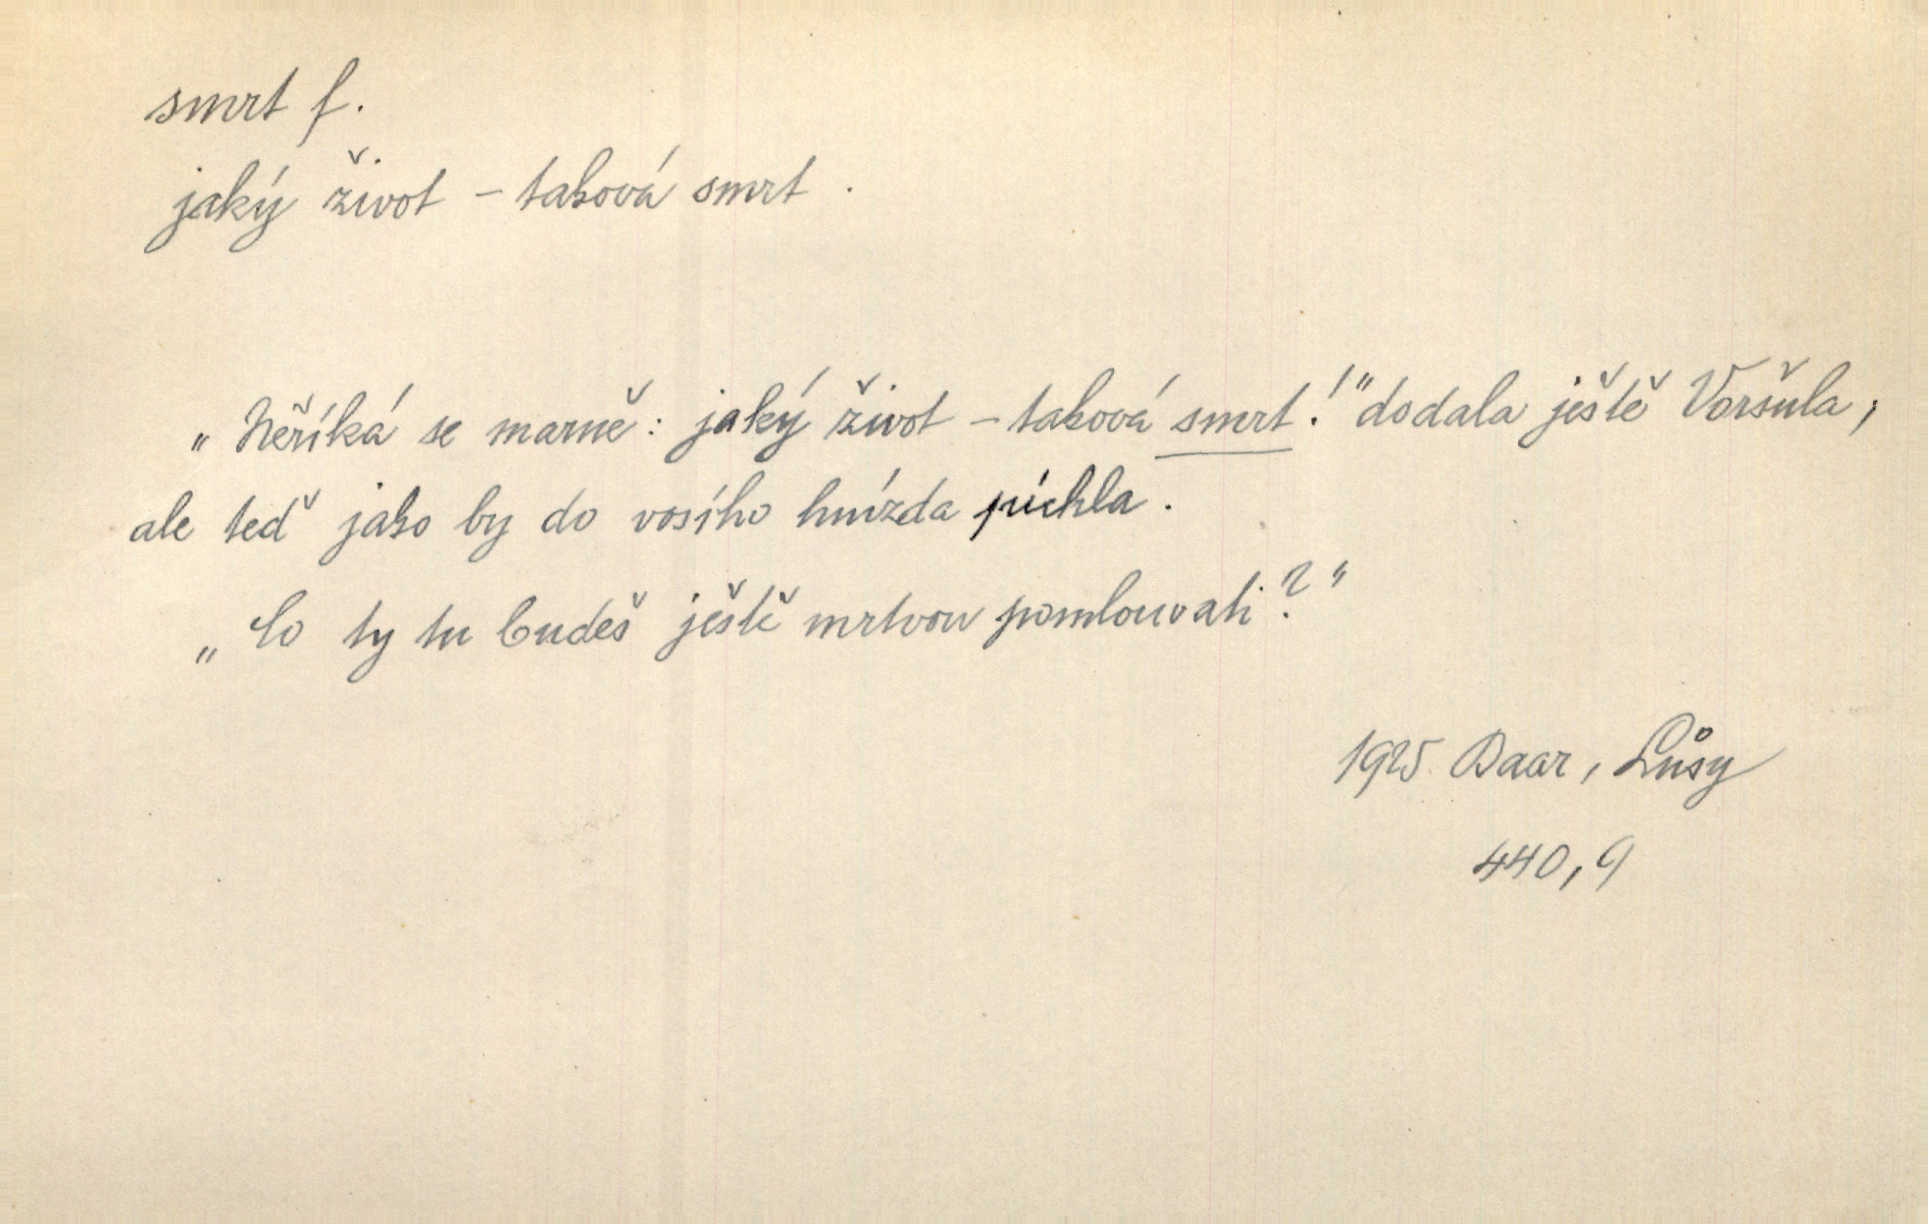 smrt f.
jaký život – taková smrt.
„Neříká se marně: jaký život – taková smrt!" dodala ještě Voršula,
ale teď jako by do vosího hnízda píchla.
„Co ty tu budeš ještě mrtvou pomlouvati?"
1925 Baar, Lůsy
440,9